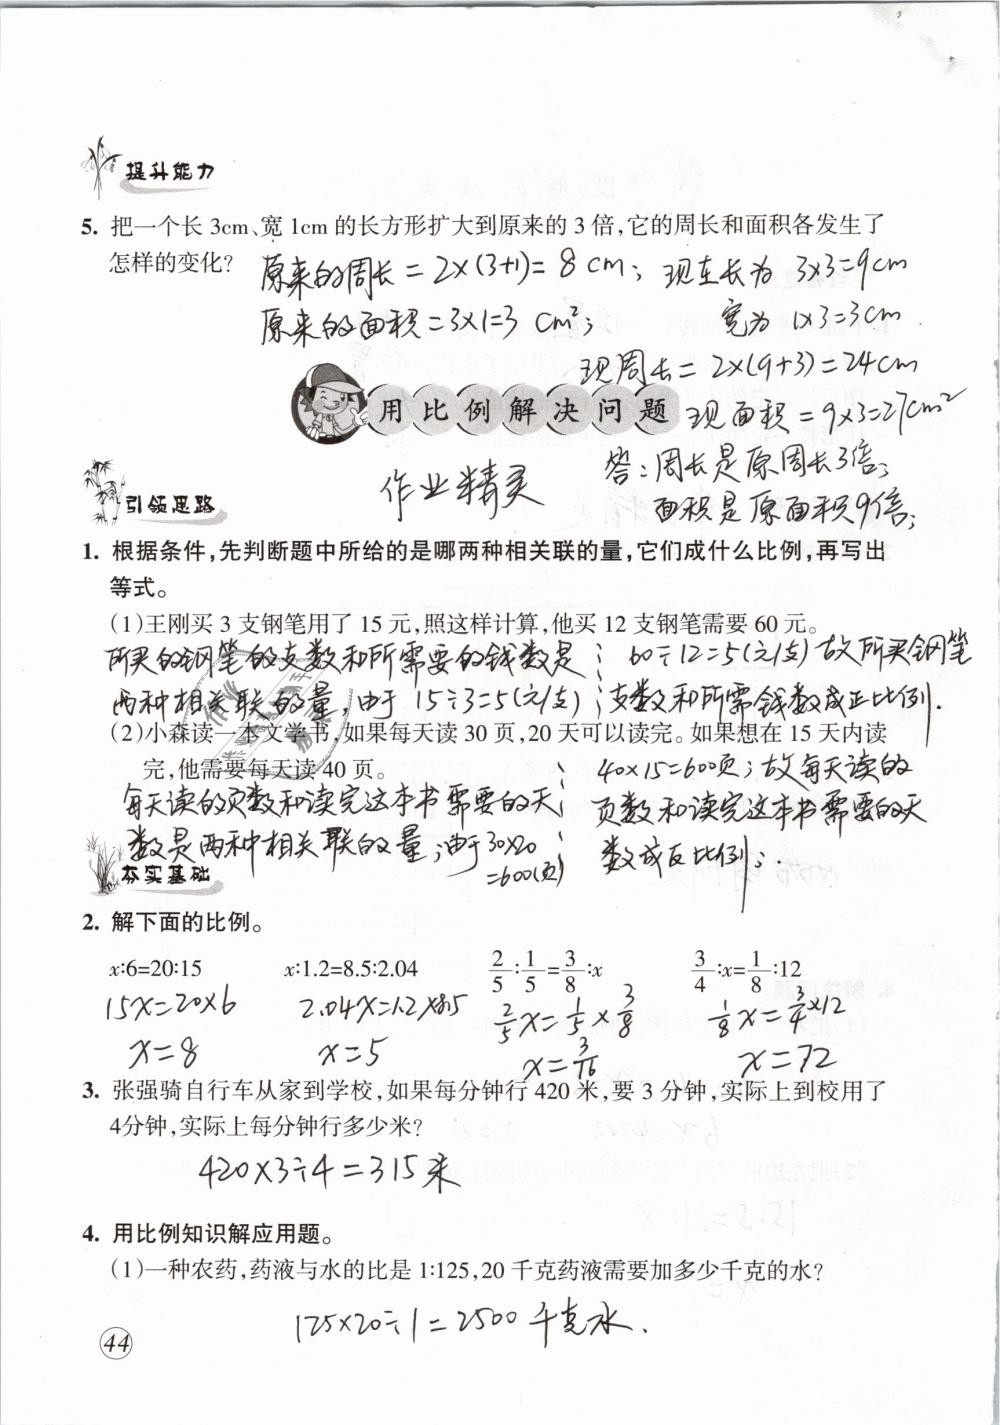 提升能力
5. 把一个长 3cm、宽 1cm 的长方形扩大到原来的 3 倍,它的周长和面积各发生了
怎样的变化?
原来的周长 = 2×(3+1)= 8 cm; 现在长为 3×3=9cm
原来的面积 =3×1=3 cm²; 宽为 1×3=3cm
现周长= 2×(9+3)=24cm
用比例解决问题
现面积 = 9×3=27cm²
答:周长是原周长3倍;
作业精灵
面积是原面积9倍;
引领思路
1. 根据条件,先判断题中所给的是哪两种相关联的量,它们成什么比例,再写出
等式。
(1)王刚买 3 支钢笔用了 15 元,照这样计算,他买 12 支钢笔需要 60 元。
所买的钢笔的支数和所需要的钱数是 ; 60÷12=5(元/支) 故所买钢笔
两种相关联的量,由于 15÷3=5(元/支) ; 支数和所需钱数成正比例.
(2)小森读一本文学书,如果每天读 30 页,20 天可以读完。如果想在 15 天内读
完,他需要每天读 40 页。
40×15=600页;故每天读的
每天读的页数和读完这本书需要的天
页数和读完这本书需要的天
数是两种相关联的量;由于30×20
=600(页)
数成反比例;.
夯实基础
2. 解下面的比例。
x∶6=20∶15 x∶1.2=8.5∶2.04 2/5∶1/5=3/8∶x 3/4∶x=1/8∶12
15x=20×6 2.04x=1.2×8.5 2/5x=1/5×3/8 1/8x=3/4×12
x=8 x=5 x=3/16 x=72
3. 张强骑自行车从家到学校,如果每分钟行 420 米,要 3 分钟,实际上到校用了
4分钟,实际上每分钟行多少米?
420×3÷4=315米
4. 用比例知识解应用题。
(1)一种农药,药液与水的比是 1∶125,20 千克药液需要加多少千克的水?
125×20÷1=2500 千克水.
44